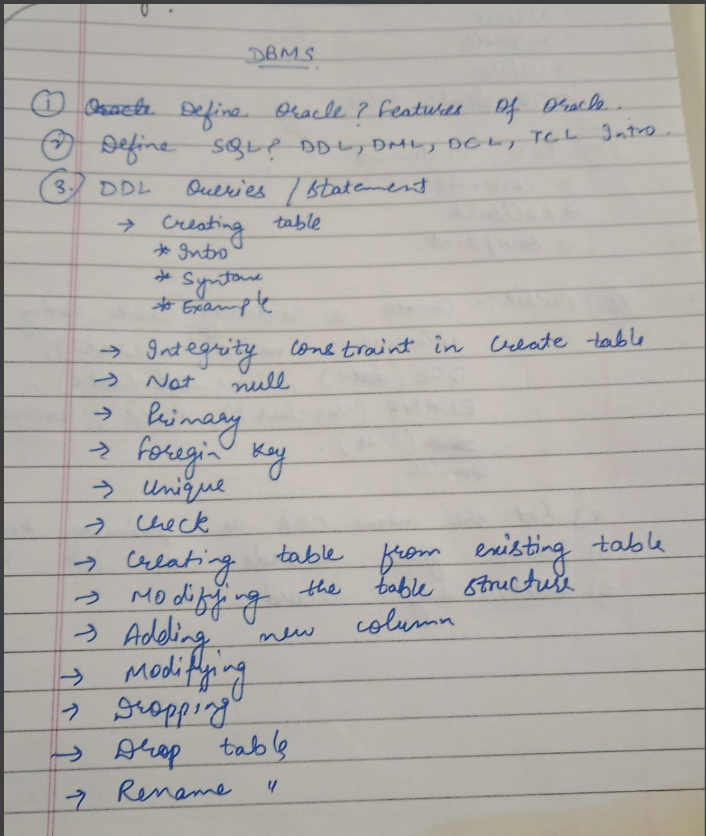 DBMS
① Define Oracle? Features Of Oracle.
② Define SQL? DDL, DML, DCL, TCL Intro.
③. DDL Queries / Statement
→ Creating table
* Intro
* Syntax
* Example
→ Integrity constraint in Create table
→ Not null
→ Primary
→ Foregin Key
→ Unique
→ Check
→ Creating table from existing table
→ Modifying the table structure
→ Adding new column
→ Modifying
→ Dropping
→ Drop table
→ Rename "